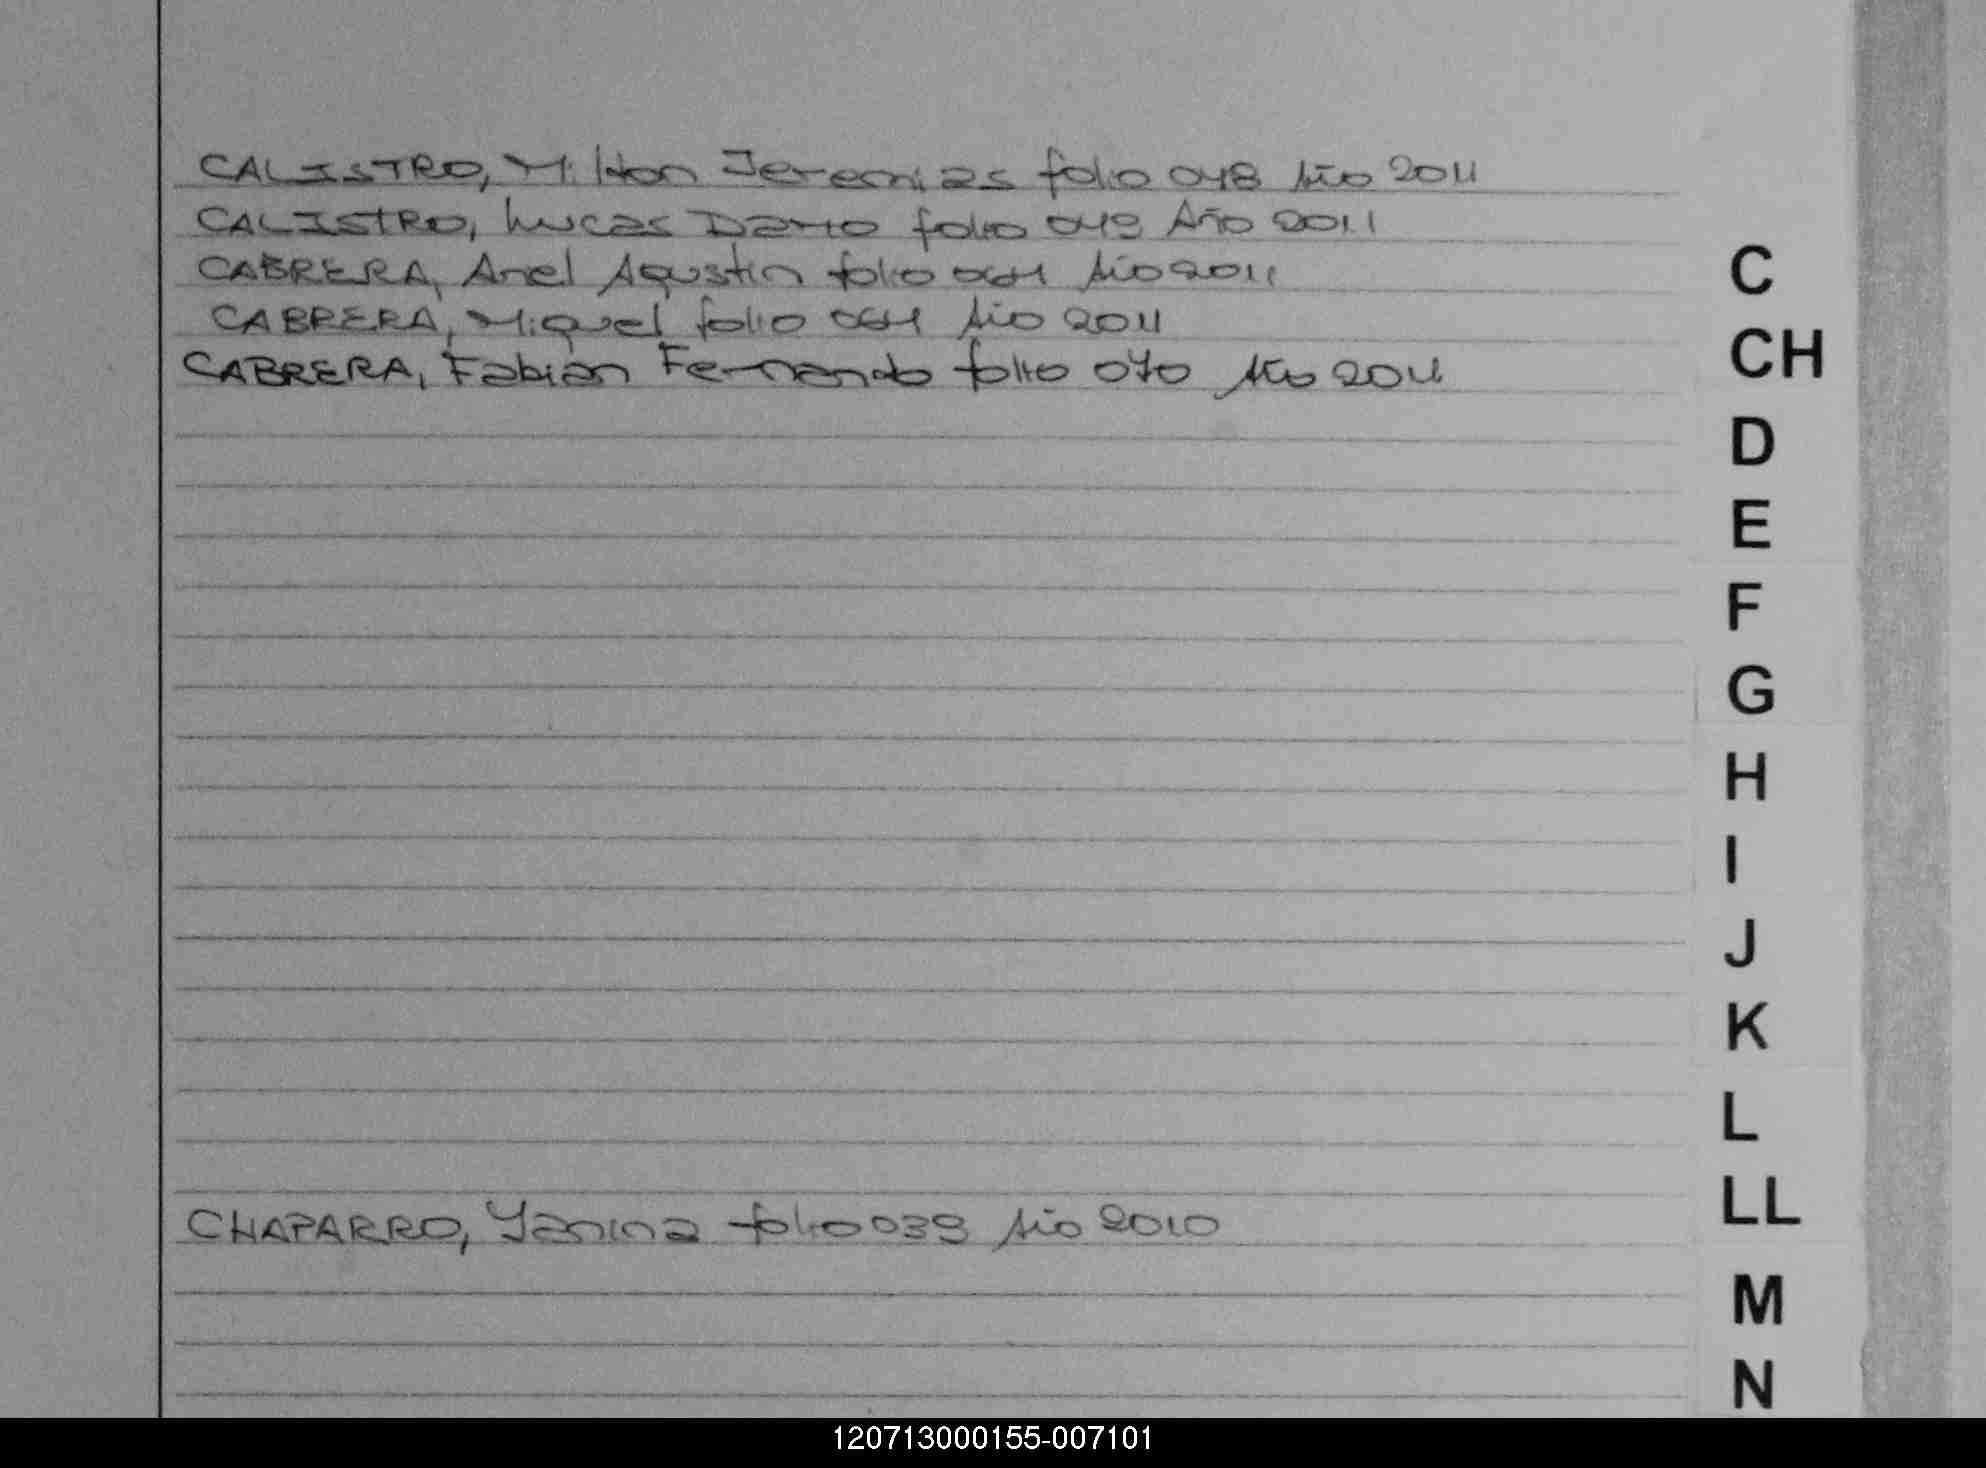 CALISTRO, Milton Jeremias folio 048 Año 2011
CALISTRO, Lucas Dario folio 049 Año 2011
CABRERA, Ariel Agustin folio 061 Año 2011
CABRERA, Miguel folio 061 Año 2011
CABRERA, Fabian Fernando folio 070 Año 2011
CHAPARRO, Yanina folio 039 Año 2010
C
CH
D
E
F
G
H
I
J
K
L
LL
M
N
120713000155-007101